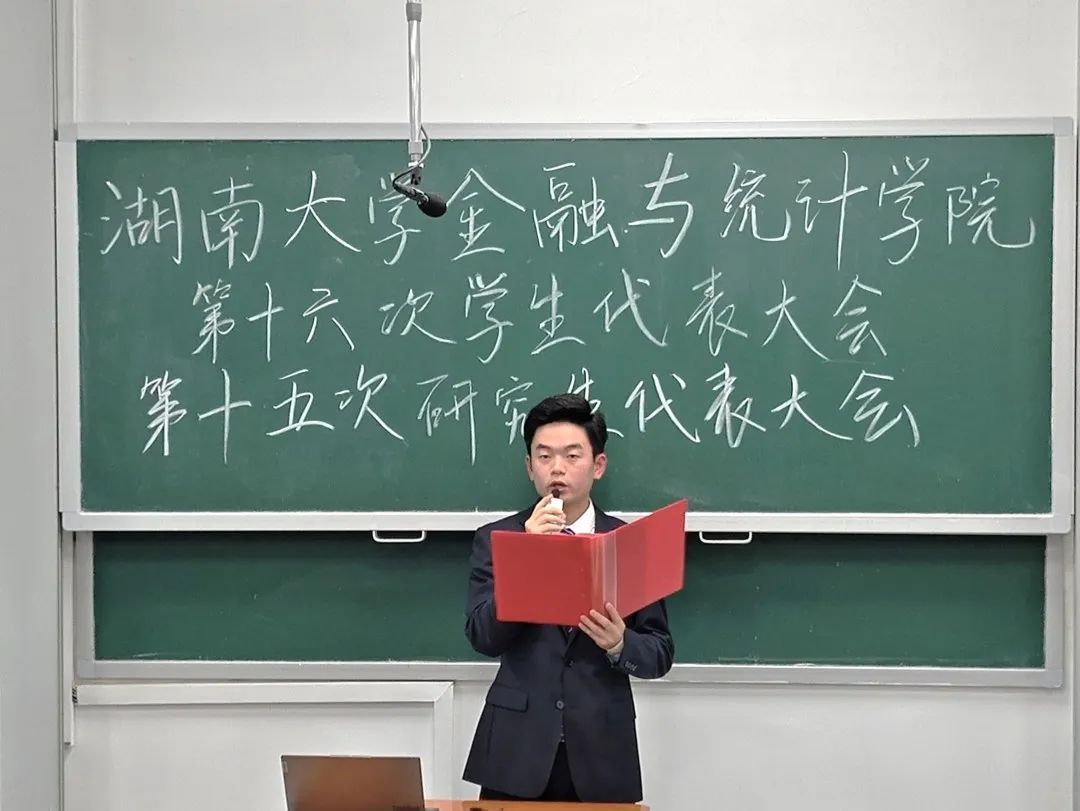 湖南大学金融与统计学院
第十六次学生代表大会
第十五次研究生代表大会